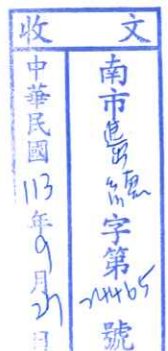 收文
南市進字第24465號
中華民國113年9月27日